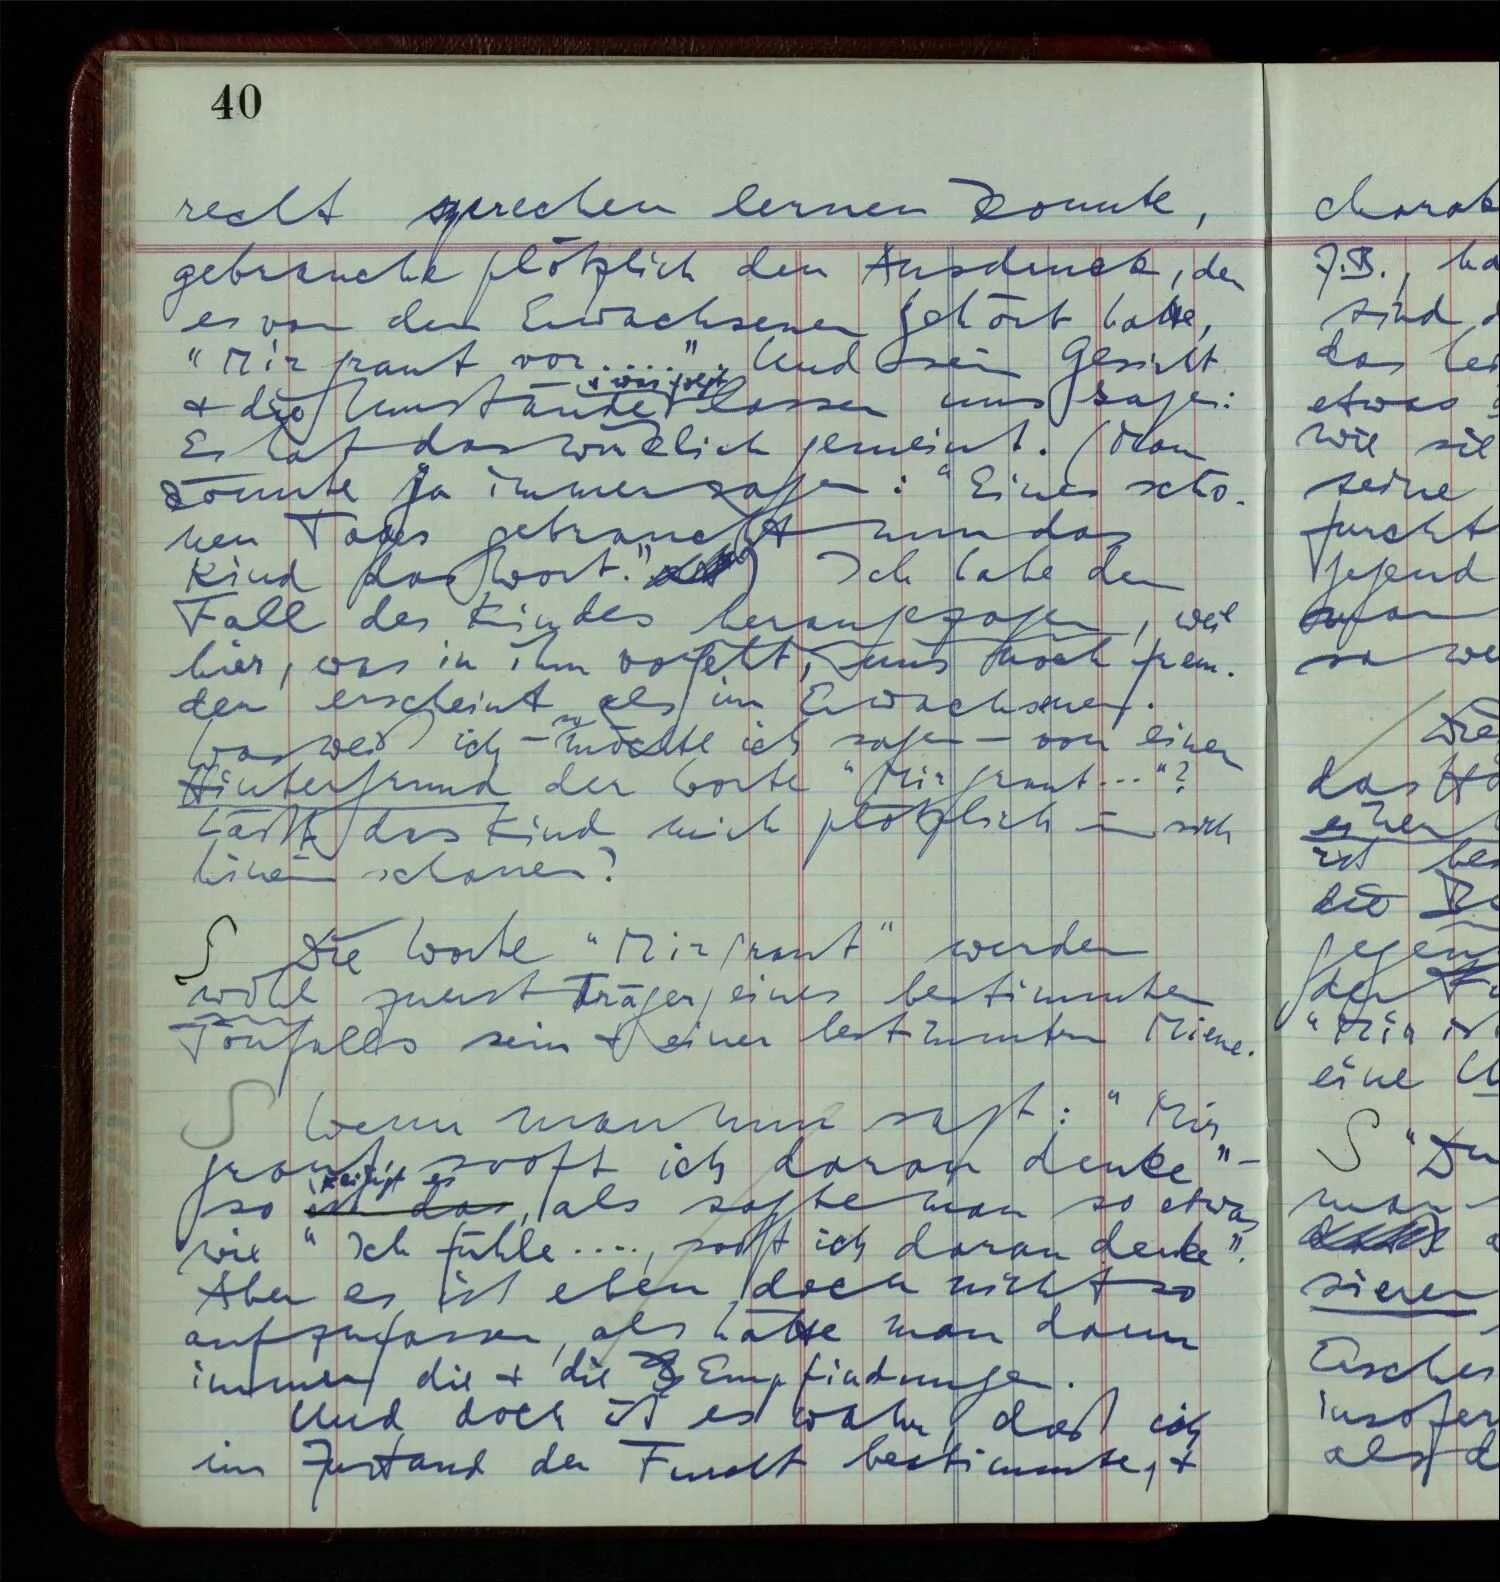 40
recht sprechen lernen konnte,
gebrauche plötzlich den Ausdruck, den
es von den Erwachsenen gehört hatte,
"Mir graut vor.....". Und sein Gesicht
+ was folgt
+ die Umstände lassen uns sagen:
Es hat das wirklich gemeint. (Man
könnte ja immer sagen: "Eines schö-
nen Tages gebraucht nun das
Kind das Wort.") Ich habe den
Fall des Kindes herangezogen, weil
hier, was in ihm vorgeht, uns noch frem-
der erscheint als im Erwachsenen.
Was weiß ich – möchte ich sagen – von einem
Hintergrund der Worte "Mir graut..."?
Läßt das Kind mich plötzlich in sich
hinein schauen?
S Die Worte "Mir graut" werden
wohl zuerst Träger eines bestimmten
Tonfalls sein + einer bestimmten Miene.
S Wenn man nun sagt: "Mir
graut, sooft ich daran denke" –
heißt es
so ist das, als sagte man so etwas
wie "Ich fühle...., sooft ich daran denke".
Aber es ist eben doch nicht so
aufzufassen, als hätte man dann
immer die + die Empfindungen.
Und doch ist es wahr, daß ich
im Zustand der Furcht bestimmte, +
charak
z.B., ha
sind d
das
etwas
wie sie
seine
furcht
so we
das
einen
ist be
die
gegen
den
"Mir ist
eine
S "Du
man
sieren
insofern
als d